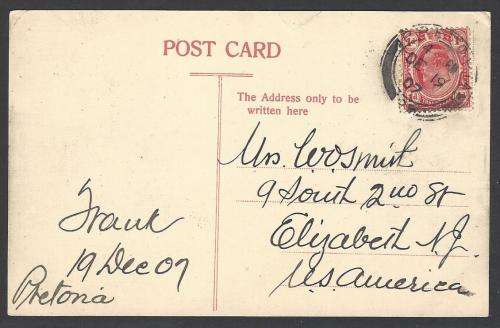 POST CARD
The Address only to be
written here
Mrs. W Smit
9 South 2nd St
Elizabeth NJ.
U.S. America
Frank
19 Dec 07
Pretoria